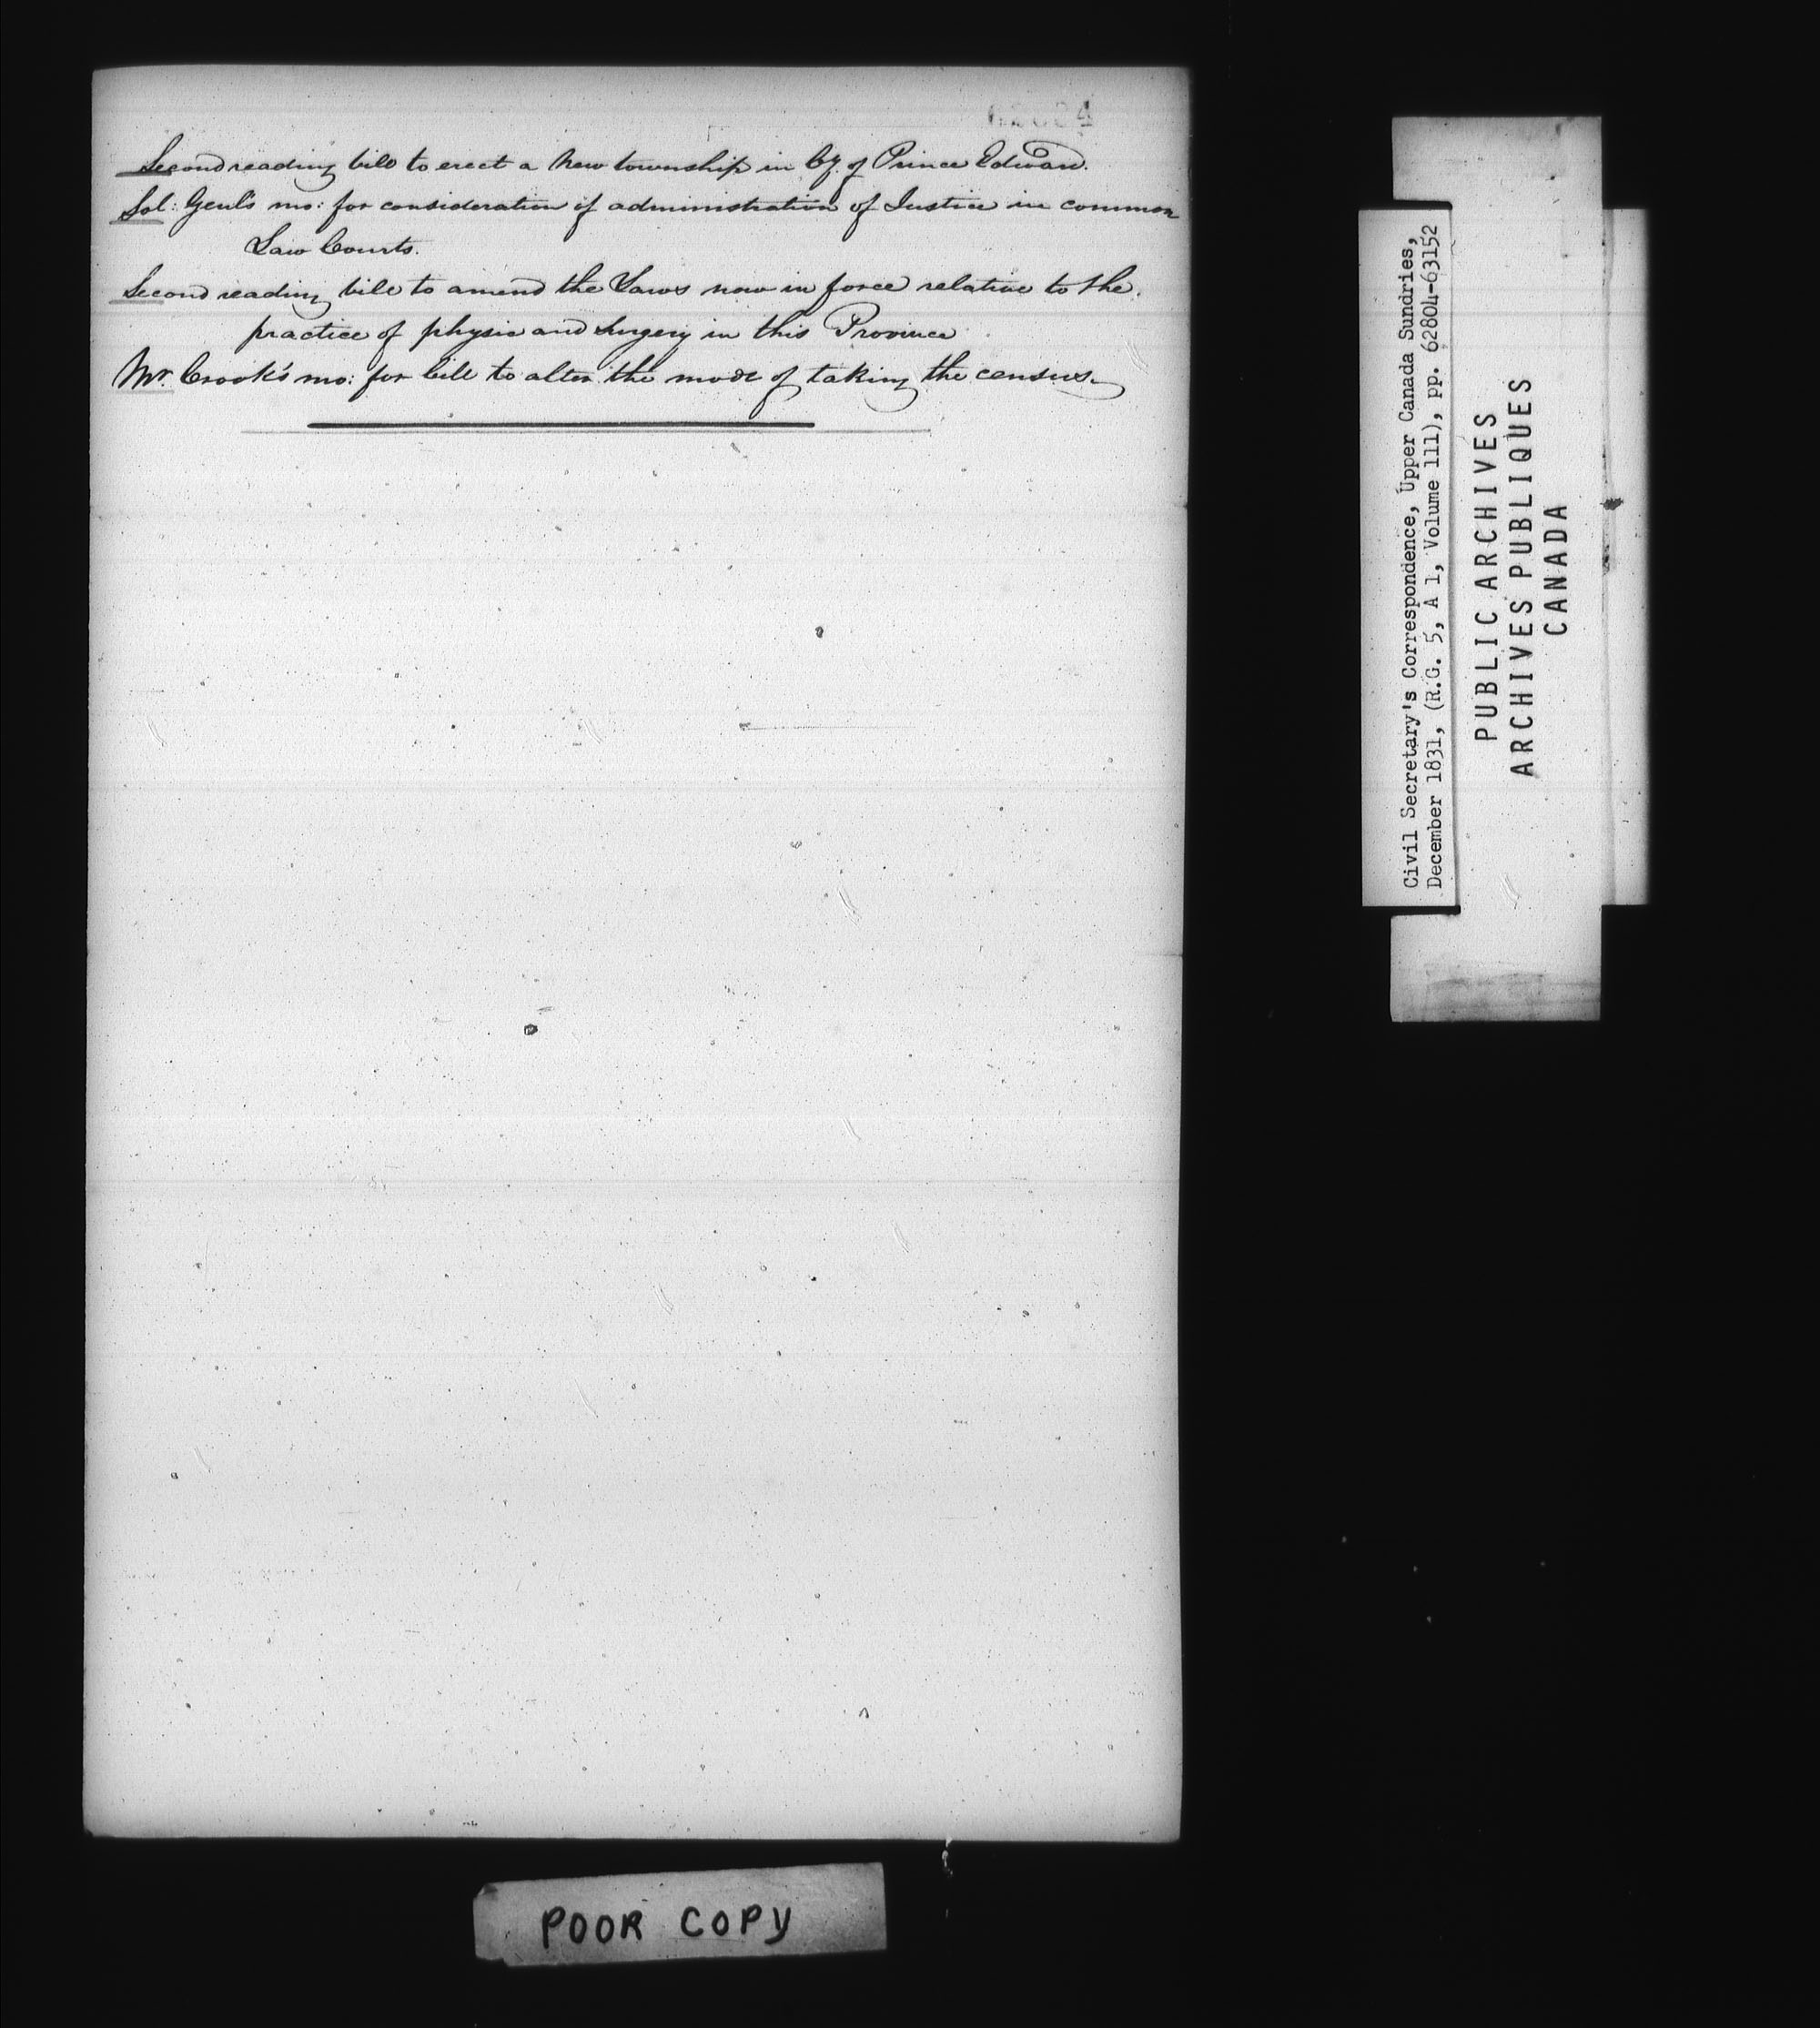 Second reading bill to erect a New township in Cy. of Prince Edward.
Sol: Genl's mo: for consideration of administration of Justice in common
Law Courts.
Second reading bill to amend the Laws now in force relative to the
practice of physic and Surgery in this Province
Mr. Crook's mo: for bill to alter the mode of taking the census.
Civil Secretary's Correspondence, Upper Canada Sundries,
December 1831, (R.G. 5, A 1, Volume 111), pp. 62804-63152
PUBLIC ARCHIVES
ARCHIVES PUBLIQUES
CANADA
POOR COPY